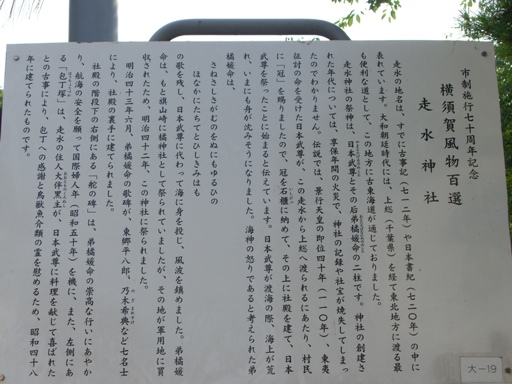 市制施行七十周年記念
横須賀風物百選
走水神社
走水の地名は、すでに古事記(七一二年)や日本書紀(七二〇年)の中に
表れています。大和朝廷時代には、上総(千葉県)を経て東北地方に渡る最
も便利な道として、この地方に古東海道が通じておりました。
走水神社の祭神は、日本武尊とその后弟橘媛命の二柱です。神社の創建さ
れた年代については、享保年間の火災で、神社の記録や社宝が焼失してしまっ
たのでわかりません。伝説では、景行天皇の即位四十年(一一〇年)、東夷
征討の命を受けた日本武尊が、この走水から上総へ渡られるにあたり、村民
に「冠」を賜りましたので、冠を石櫃に納めて、その上に社殿を建て、日本
武尊を祭ったことに始まると伝えています。日本武尊が渡海の際、海上が荒
れ、いまにも舟が沈みそうになりました。海神の怒りであると考えられた弟
橘媛命は、
さねさしさがむのをぬにもゆるひの
ほなかにたちてとひしきみはも
の歌を残し、日本武尊に代わって海に身を投じ、風波を鎮めました。弟橘媛
命は、もと旗山崎に橘神社として祭られていましたが、その地が軍用地に買
収されたため、明治四十二年、この神社に祭られました。
明治四十三年六月、弟橘媛命の歌碑が、東郷平八郎、乃木希典など七名士
により、社殿の裏手に建てられました。
社殿の階段下の右側にある「舵の碑」は、弟橘媛命の崇高な行いにあやか
り、航海の安全を願って国際婦人年(昭和五十年)を機に、また、左側にあ
る「包丁塚」は、走水の住人大伴黒主が、日本武尊に料理を献じて喜ばれた
との古事により、包丁への感謝と鳥獣魚介類の霊を慰めるため、昭和四十八
年に建てられたものです。
大-19